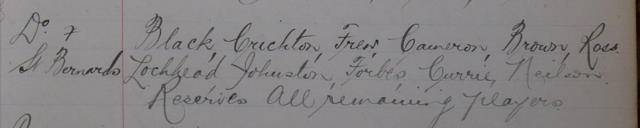 Do. F Black, Crichton, Frew, Cameron, Brown, Ross.
St Bernards Lochhead, Johnston, Forbes, Currie, Neilson.
Reserves All remaining players